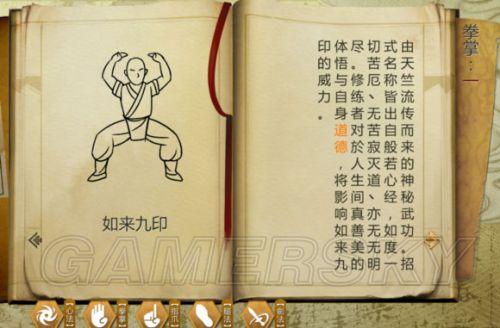 拳掌：一
由天竺流传而来的神秘武功。招
式名称皆出自般若心经，如度一
切苦厄、无苦寂灭道、亦无无明
尽。修练者对於人间真善美的
体悟与自身道德，将影响如来九
印的威力。
如来九印
GAMERSKY
心法
拳掌
指爪
腿法